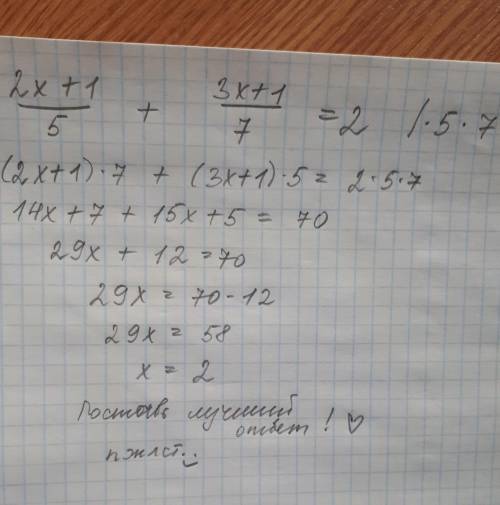 (2x+1)/5 + (3x+1)/7 = 2 /·5·7
(2x+1)·7 + (3x+1)·5 = 2·5·7
14x+7 + 15x+5 = 70
29x + 12 = 70
29x = 70-12
29x = 58
x = 2
Поставь лучший
ответ ! ♡
пжлст